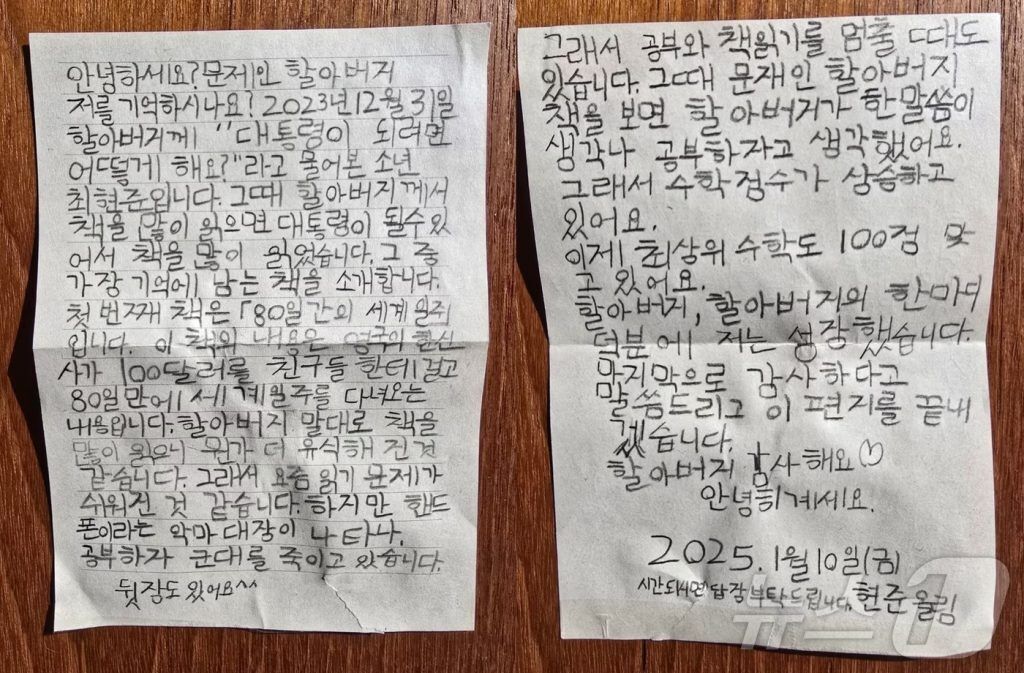 안녕하세요? 문제인 할아버지
저를 기억하시나요? 2023년 12월 31일
할아버지께 "대통령이 되려면
어떻게 해요?"라고 물어본 소년
최현준입니다. 그때 할아버지께서
책을 많이 읽으면 대통령이 될수 있
어서 책을 많이 읽었습니다. 그 중
가장 기억에 남는 책을 소개합니다.
첫 번째 책은 「80일간의 세계 일주
입니다. 이 책의 내용은 영국의 한신
사가 100달러를 친구들 한테 걸고
80일만에 세계 일주를 다녀오는
내용입니다. 할아버지 말대로 책을
많이 읽으니 뭔가 더 유식해 진 것
같습니다. 그래서 요즘 읽기 문제가
쉬워진 것 같습니다. 하지만 핸드
폰이라는 악마 대장이 나타나.
공부하자 군대를 죽이고 있습니다.
뒷장도 있어요^^
그래서 공부와 책읽기를 멈출 때도
있습니다. 그때 문재인 할아버지
책을 보면 할아버지가 한 말씀이
생각나 공부하자고 생각했어요.
그래서 수학점수가 상승하고
있어요.
이제 최상위 수학도 100점 맞
고 있어요.
할아버지, 할아버지의 한마디
덕분에 저는 성장했습니다.
맞지막으로 감사하다고
말씀드리고 이 편지를 끝내
겠습니다.
할아버지 감사해요♡
안녕히계세요.
2025. 1월 10일(금)
시간되시면 답장 부탁드립니다. 현준 올림
뉴스1